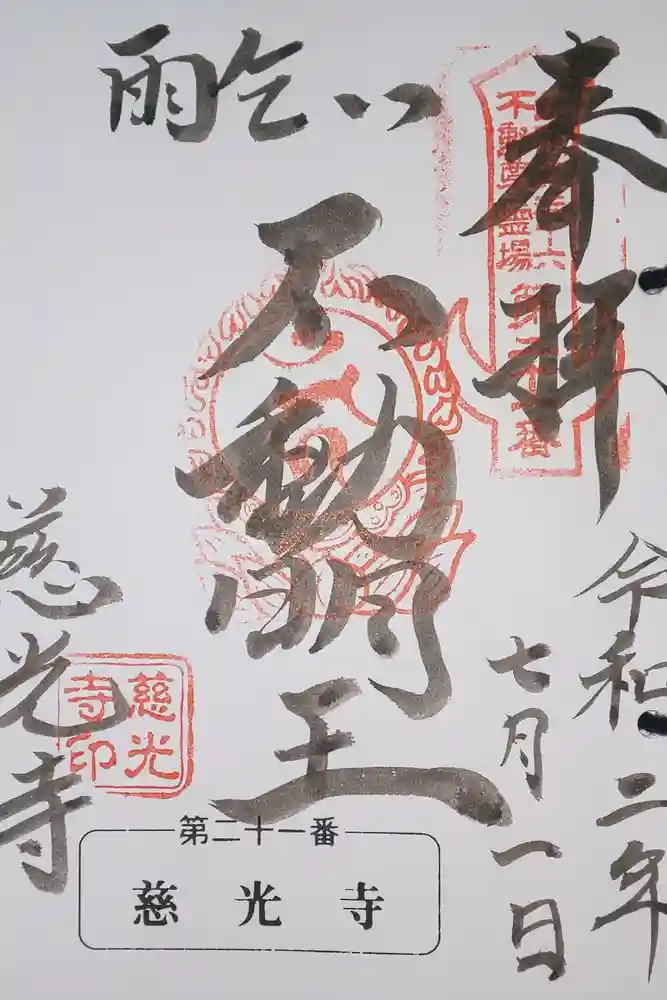 奉拝
令和二年
七月一日
雨乞い
不動明王
慈光寺
不動尊霊場
第二十一番
慈光寺印
第二十一番
慈光寺